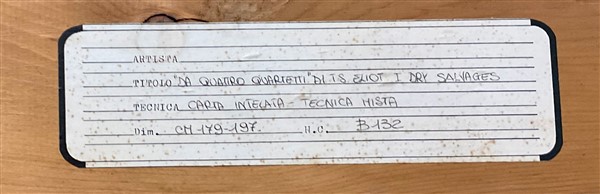 ARTISTA
TITOLO "DA QUATTRO QUARTETTI" DI T.S. ELIOT I DRY SALVAGES
TECNICA CARTA INTELATA - TECNICA MISTA
Dim. CM 179-197. N.C. B132